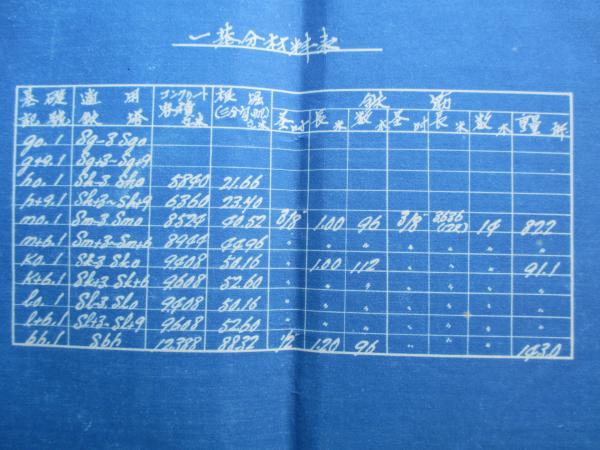 一基分材料表
基礎 適用 コンクリート 根堀 鉄筋
記號 鉄塔 容積 立米 立米 径 吋 長 米 数 本 径 吋 長 米 数 本 重量 瓩
go.1 Sg-3 Sgo
g+9.1 Sg+3~Sg+9
ho.1 Sh-3.Sho 5840 21.66
h+9.1 Sh+3~Sh+9 6360 23.40
mo.1 Sm-3.Smo 8524 40.52 3/8" 1.00 96 3/8" 14 82.2
m+6.1 Sm+3~Sm+6 8944 44.96 〃 〃 〃 〃 〃 〃 〃
Ko.1 Sk-3.Sko 9408 50.16 〃 1.00 112 〃 〃 〃 91.1
K+6.1 Sk+3~Sk+6 9608 52.60 〃 〃 〃 〃 〃 〃 〃
lo.1 Sl-3.Slo 9408 50.16 〃 〃 〃 〃 〃 〃 〃
l+6.1 Sl+3~Sl+9 9608 52.60 〃 〃 〃 〃 〃 〃 〃
bh.1 Sbh 12388 88.32 1/2" 1.20 96 143.0